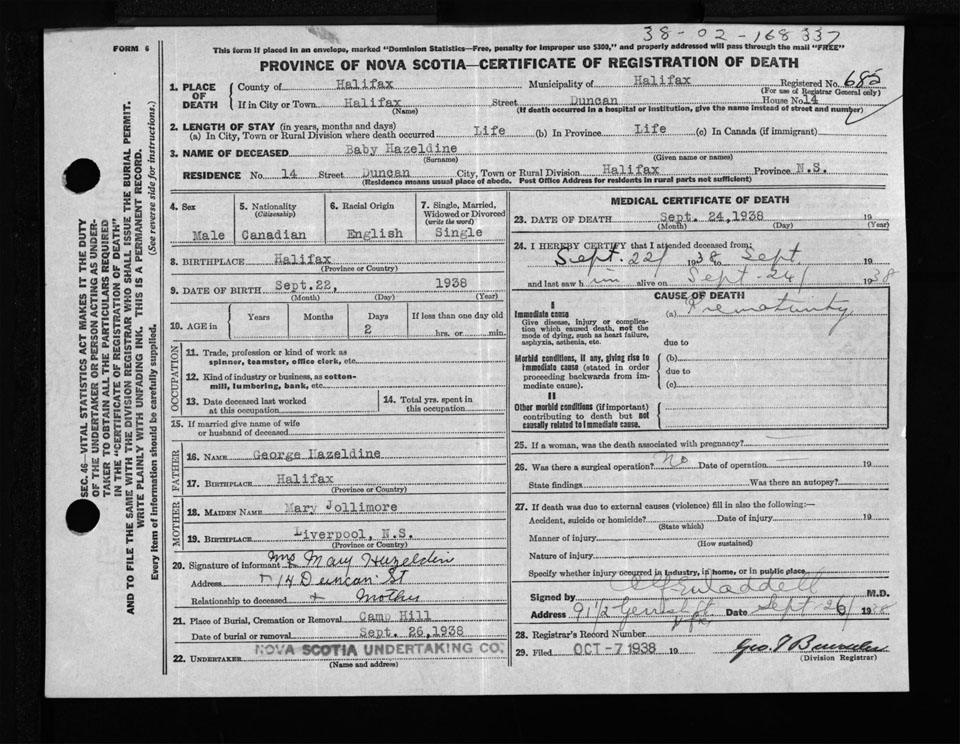 38-02-168337
FORM 6
This form if placed in an envelope, marked "Dominion Statistics—Free, penalty for improper use $300," and properly addressed will pass through the mail "FREE"
PROVINCE OF NOVA SCOTIA—CERTIFICATE OF REGISTRATION OF DEATH
SEC. 46—VITAL STATISTICS ACT MAKES IT THE DUTY
OF THE UNDERTAKER OR PERSON ACTING AS UNDER-
TAKER TO OBTAIN ALL THE PARTICULARS REQUIRED
IN THE "CERTIFICATE OF REGISTRATION OF DEATH"
AND TO FILE THE SAME WITH THE DIVISION REGISTRAR WHO SHALL ISSUE THE BURIAL PERMIT.
WRITE PLAINLY WITH UNFADING INK. THIS IS A PERMANENT RECORD.
Every item of information should be carefully supplied. (See reverse side for instructions.)
1. PLACE OF DEATH
County of Halifax Municipality of Halifax Registered No. 685
(For use of Registrar General only)
If in City or Town Halifax Street Duncan House No. 14
(Name) (If death occurred in a hospital or institution, give the name instead of street and number)
2. LENGTH OF STAY (in years, months and days)
(a) In City, Town or Rural Division where death occurred Life (b) In Province Life (c) In Canada (if immigrant)
3. NAME OF DECEASED Baby Hazeldine
(Surname) (Given name or names)
RESIDENCE No. 14 Street Duncan City, Town or Rural Division Halifax Province N.S.
(Residence means usual place of abode. Post Office Address for residents in rural parts not sufficient)
4. Sex
Male
5. Nationality
(Citizenship)
Canadian
6. Racial Origin
English
7. Single, Married,
Widowed or Divorced
(write the word)
Single
8. BIRTHPLACE Halifax
(Province or Country)
9. DATE OF BIRTH Sept.22, 1938
(Month) (Day) (Year)
10. AGE in
Years Months Days If less than one day old
2 hrs. or min.
OCCUPATION
11. Trade, profession or kind of work as
spinner, teamster, office clerk, etc.
12. Kind of industry or business, as cotton-
mill, lumbering, bank, etc.
13. Date deceased last worked
at this occupation
14. Total yrs. spent in
this occupation
15. If married give name of wife
or husband of deceased
FATHER
16. NAME George Hazeldine
17. BIRTHPLACE Halifax
(Province or Country)
MOTHER
18. MAIDEN NAME Mary Jollimore
19. BIRTHPLACE Liverpool, N.S.
(Province or Country)
20. Signature of informant Mrs Mary Hazeldin
Address 14 Duncan St
Relationship to deceased Mother
21. Place of Burial, Cremation or Removal Camp Hill
Date of burial or removal Sept. 26,1938
22. UNDERTAKER NOVA SCOTIA UNDERTAKING CO.
(Name and address)
MEDICAL CERTIFICATE OF DEATH
23. DATE OF DEATH Sept. 24,1938 19
(Month) (Day) (Year)
24. I HEREBY CERTIFY that I attended deceased from:
Sept. 22/ 1938 to Sept. 19
and last saw him alive on Sept-24/ 1938
CAUSE OF DEATH
I
Immediate cause
Give disease, injury or complica-
tion which caused death, not the
mode of dying, such as heart failure,
asphyxia, asthenia, etc.
(a) Prematurity
due to
Morbid conditions, if any, giving rise to
immediate cause (stated in order
proceeding backwards from im-
mediate cause).
(b)
due to
(c)
II
Other morbid conditions (if important)
contributing to death but not
causally related to immediate cause.
25. If a woman, was the death associated with pregnancy?
26. Was there a surgical operation? No Date of operation — 19
State findings Was there an autopsy?
27. If death was due to external causes (violence) fill in also the following:—
Accident, suicide or homicide? Date of injury 19
(State which)
Manner of injury
(How sustained)
Nature of injury
Specify whether injury occurred in industry, in home, or in public place
Signed by Waddell M.D.
Address 91 1/2 Gerrish St Date Sept 26/ 1938
28. Registrar's Record Number
29. Filed OCT -7 1938 19
(Division Registrar)